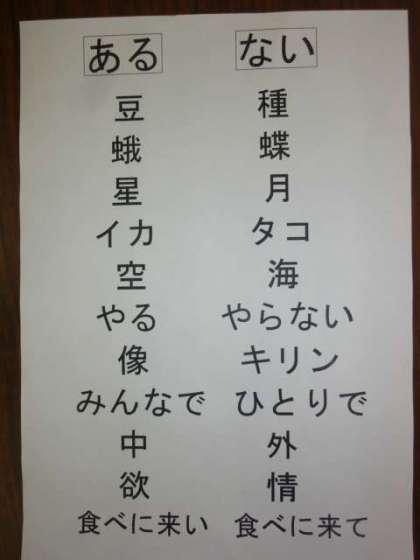 ある ない
豆 種
蛾 蝶
星 月
イカ タコ
空 海
やる やらない
像 キリン
みんなで ひとりで
中 外
欲 情
食べに来い 食べに来て